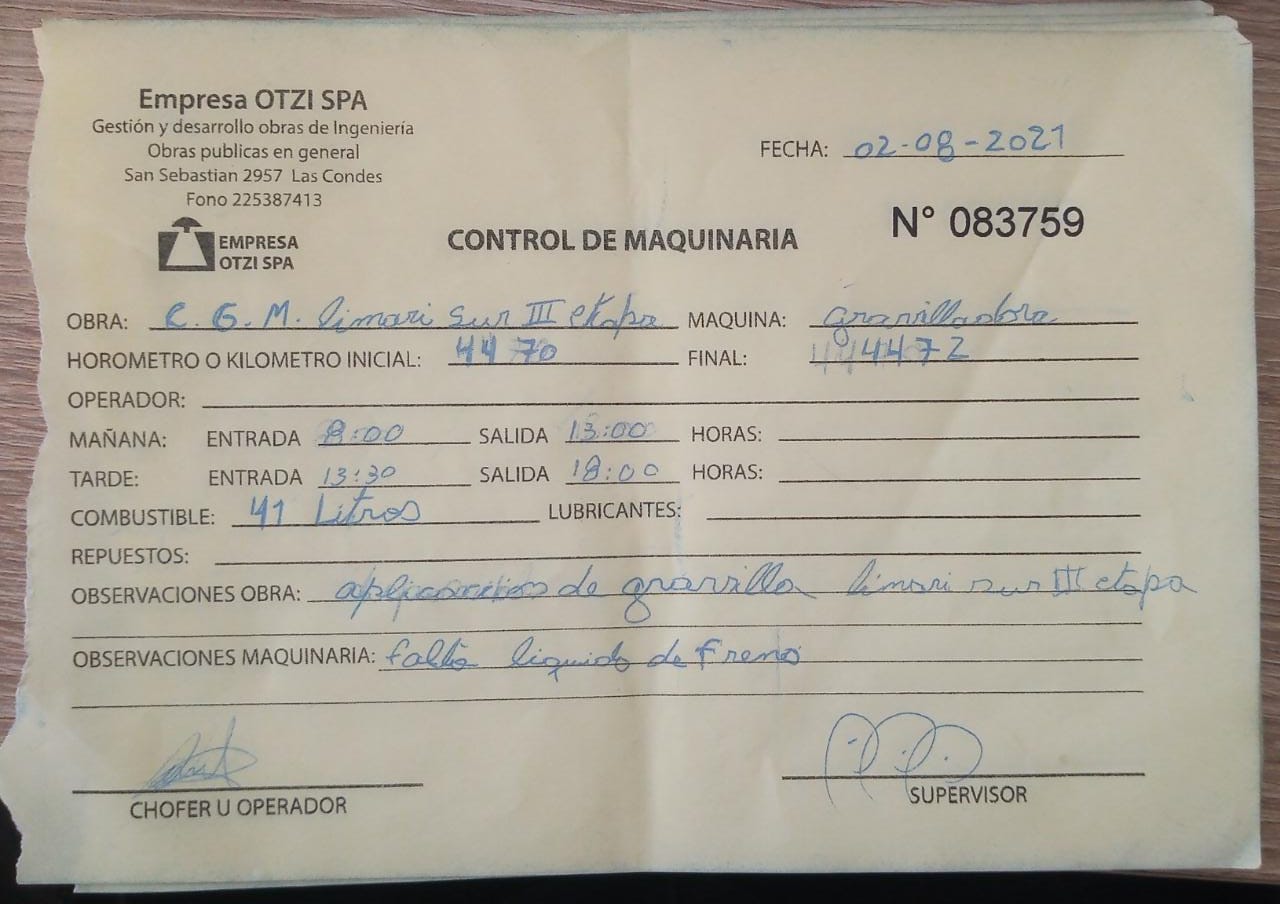 Empresa OTZI SPA
Gestión y desarrollo obras de Ingeniería
Obras publicas en general
San Sebastian 2957 Las Condes
Fono 225387413
EMPRESA
OTZI SPA
FECHA: 02-08-2021
CONTROL DE MAQUINARIA
N° 083759
OBRA: C. G. M. limari sur III etapa MAQUINA: gravilladora
HOROMETRO O KILOMETRO INICIAL: 4470 FINAL: 4472
OPERADOR:
MAÑANA: ENTRADA 8:00 SALIDA 13:00 HORAS:
TARDE: ENTRADA 13:30 SALIDA 18:00 HORAS:
COMBUSTIBLE: 41 Litros LUBRICANTES:
REPUESTOS:
OBSERVACIONES OBRA: de gravilla limari sur III etapa
OBSERVACIONES MAQUINARIA: falta liquido de Freno
CHOFER U OPERADOR
SUPERVISOR